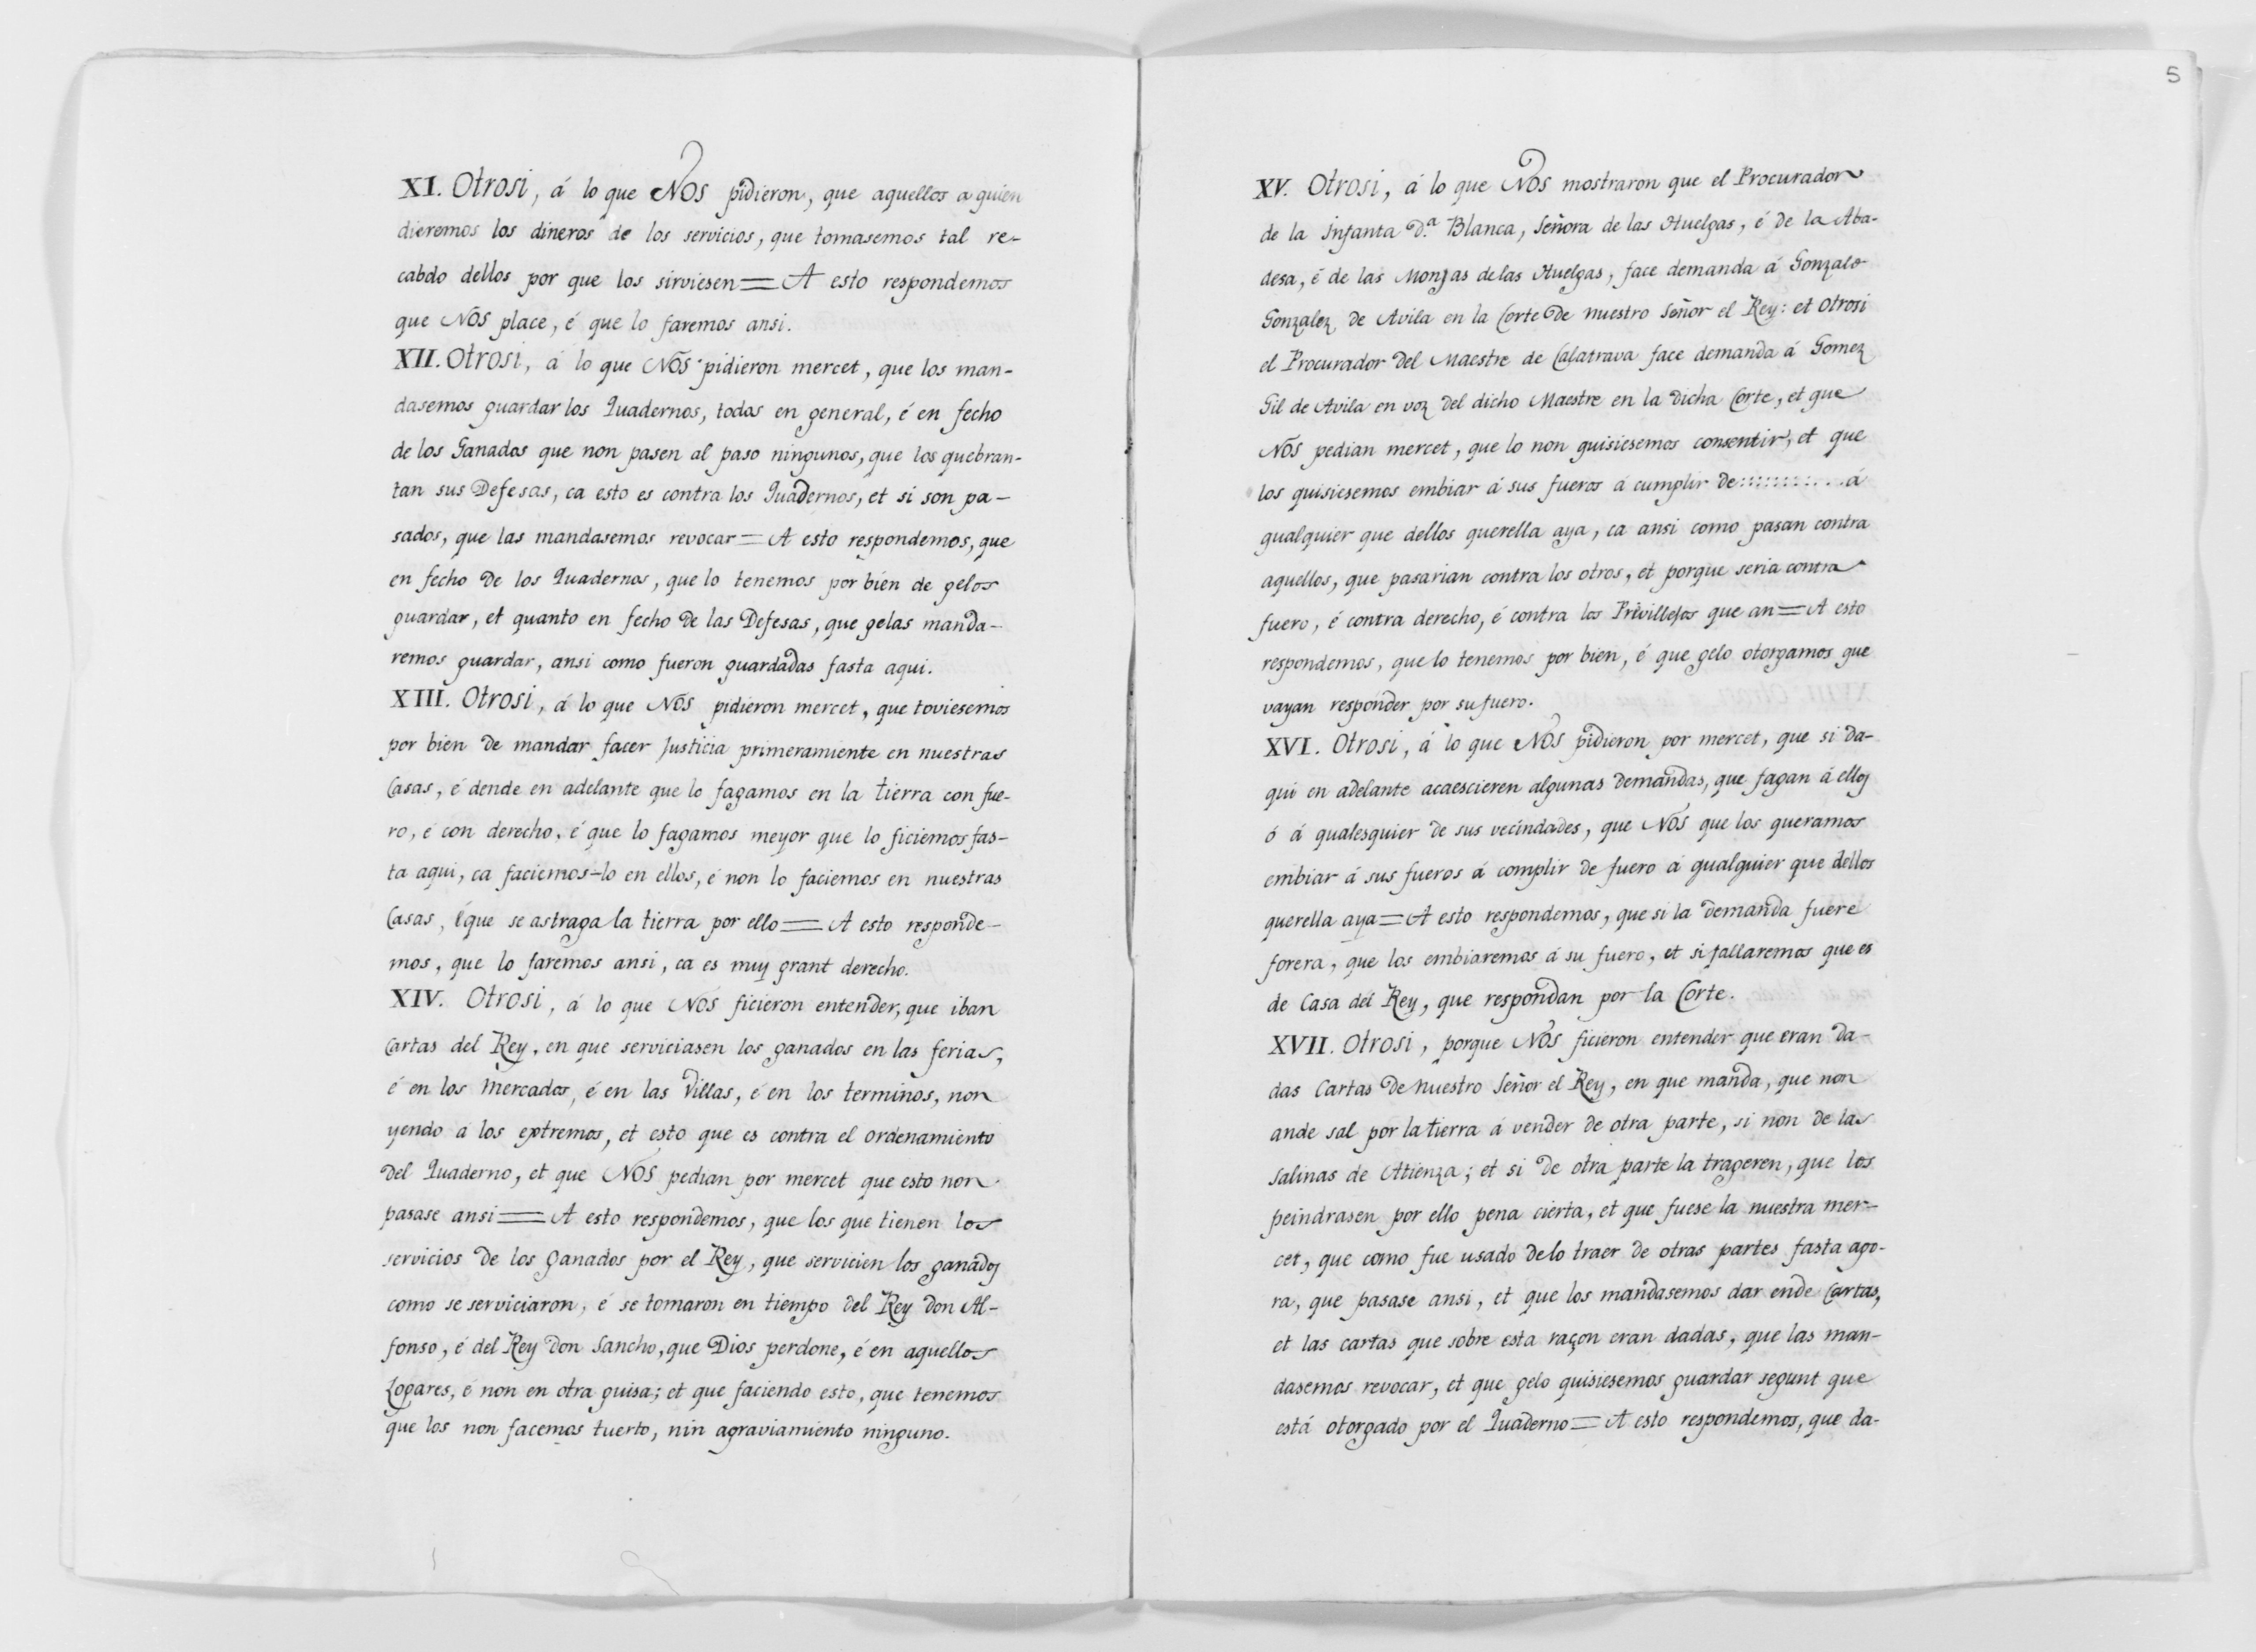 XI. Otrosi, á lo que NOS pidieron, que aquellos a quien
dieremos los dineros de los servicios, que tomasemos tal re-
cabdo dellos por que los sirviesen = A esto respondemos
que NOS place, é que lo faremos ansi.
XII. Otrosi, á lo que NOS pidieron mercet, que los man-
dasemos guardar los Quadernos, todos en general, é en fecho
de los Ganados que non pasen al paso ningunos, que los quebran-
tan sus Defesas, ca esto es contra los Quadernos, et si son pa-
sados, que las mandasemos revocar = A esto respondemos, que
en fecho de los Quadernos, que lo tenemos por bien de gelos
guardar, et quanto en fecho de las Defesas, que gelas manda-
remos guardar, ansi como fueron guardadas fasta aqui.
XIII. Otrosi, á lo que NOS pidieron mercet, que toviesemos
por bien de mandar facer Justicia primeramiente en nuestras
Casas, é dende en adelante que lo fagamos en la tierra con fue-
ro, é con derecho, é que lo fagamos meyor que lo ficiemos fas-
ta aqui, ca faciemos-lo en ellos, é non lo faciemos en nuestras
Casas, é que se astraga la tierra por ello = A esto responde-
mos, que lo faremos ansi, ca es muy grant derecho.
XIV. Otrosi, á lo que NOS ficieron entender, que iban
Cartas del Rey, en que serviciasen los ganados en las ferias,
é en los Mercados, é en las Villas, é en los terminos, non
yendo á los extremos, et esto que es contra el ordenamiento
del Quaderno, et que NOS pedian por mercet que esto non
pasase ansi = A esto respondemos, que los que tienen los
servicios de los ganados por el Rey, que servicien los ganados
como se serviciaron, é se tomaron en tiempo del Rey Don Al-
fonso, é del Rey Don Sancho, que Dios perdone, é en aquellos
Logares, é non en otra guisa; et que faciendo esto, que tenemos
que los non facemos tuerto, nin agraviamiento ninguno.
5
XV. Otrosi, á lo que NOS mostraron que el Procurador
de la Infanta D.ª Blanca, Señora de las Huelgas, é de la Aba-
desa, é de las Monjas de las Huelgas, face demanda á Gonzalo
Gonzalez de Avila en la Corte de nuestro Señor el Rey: et Otrosi
el Procurador del Maestre de Calatrava face demanda á Gomez
Gil de Avila en voz del dicho Maestre en la dicha Corte, et que
NOS pedian mercet, que lo non quisiesemos consentir, et que
los quisiesemos embiar á sus fueros á cumplir de ........... á
qualquier que dellos querella aya, ca ansi como pasan contra
aquellos, que pasarian contra los otros, et porque seria contra
fuero, é contra derecho, é contra los Previllejos que an = A esto
respondemos, que lo tenemos por bien, é que gelo otorgamos que
vayan responder por su fuero.
XVI. Otrosi, á lo que NOS pidieron por mercet, que si da-
qui en adelante acaescieren algunas demandas, que fagan á ellos
ó á qualesquier de sus vecindades, que NOS que los queramos
embiar á sus fueros á complir de fuero á qualquier que dellos
querella aya = A esto respondemos, que si la demanda fuere
forera, que los embiaremos á su fuero, et si fallaremos que es
de Casa del Rey, que respondan por la Corte.
XVII. Otrosi, porque NOS ficieron entender que eran da-
das Cartas de nuestro Señor el Rey, en que manda, que non
ande sal por la tierra á vender de otra parte, si non de las
Salinas de Atienza; et si de otra parte la trageren, que los
peindrasen por ello pena cierta, et que fuese la nuestra mer-
cet, que como fue usado de lo traer de otras partes fasta ago-
ra, que pasase ansi, et que los mandasemos dar ende Cartas,
et las cartas que sobre esta raçon eran dadas, que las man-
dasemos revocar, et que gelo quisiesemos guardar segunt que
está otorgado por el Quaderno = A esto respondemos, que da-